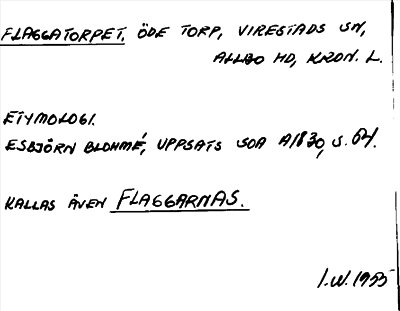 FLAGGATORPET. ÖDE TORP, VIRESTADS SN,
ALLBO HD, KRON. L.
ETYMOLOGI.
ESBJÖRN BLOHMÉ, UPPSATS SOA A1830, S. 64.
KALLAS ÄVEN FLAGGARNAS.
I.W. 1955